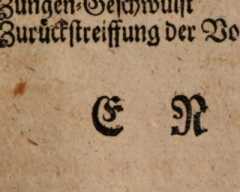 Zungen-Geschwulst
Zurückstreiffung der Vo
E N